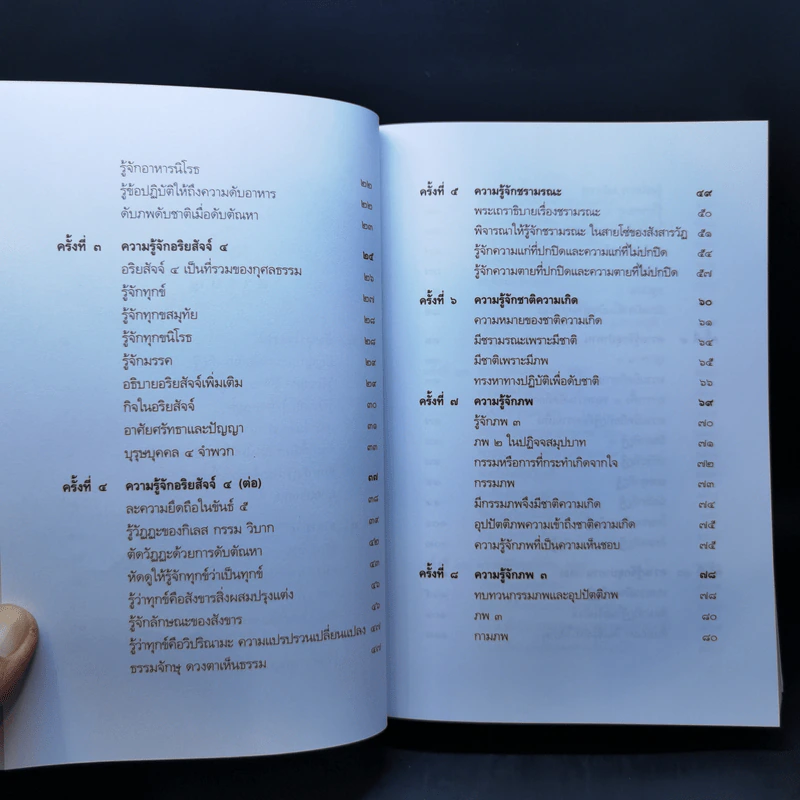 รู้จักอาหารนิโรธ ๒๒
รู้ข้อปฏิบัติให้ถึงความดับอาหาร ๒๒
ดับภพดับชาติเมื่อดับตัณหา ๒๓
ครั้งที่ ๓ ความรู้จักอริยสัจจ์ ๔ ๒๕
อริยสัจจ์ ๔ เป็นที่รวมของกุศลธรรม ๒๖
รู้จักทุกข์ ๒๗
รู้จักทุกขสมุทัย ๒๘
รู้จักทุกขนิโรธ ๒๘
รู้จักมรรค ๒๙
อธิบายอริยสัจจ์เพิ่มเติม ๒๙
กิจในอริยสัจจ์ ๓๐
อาศัยศรัทธาและปัญญา ๓๑
บุรุษบุคคล ๔ จำพวก ๓๓
ครั้งที่ ๔ ความรู้จักอริยสัจจ์ ๔ (ต่อ) ๓๗
ละความยึดถือในขันธ์ ๕ ๓๘
รู้วัฏฏะของกิเลส กรรม วิบาก ๓๙
ตัดวัฏฏะด้วยการดับตัณหา ๔๒
หัดดูให้รู้จักทุกข์ว่าเป็นทุกข์ ๔๓
รู้ว่าทุกข์คือสังขารสิ่งผสมปรุงแต่ง ๔๖
รู้จักลักษณะของสังขาร ๔๖
รู้ว่าทุกข์คือวิปริณามะ ความแปรปรวนเปลี่ยนแปลง ๔๗
ธรรมจักษุ ดวงตาเห็นธรรม ๔๗
ครั้งที่ ๕ ความรู้จักชรามรณะ ๔๙
พระเถราธิบายเรื่องชรามรณะ ๕๐
พิจารณาให้รู้จักชรามรณะ ในสายโซ่ของสังสารวัฏ ๕๑
รู้จักความแก่ที่ปกปิดและความแก่ที่ไม่ปกปิด ๕๔
รู้จักความตายที่ปกปิดและความตายที่ไม่ปกปิด ๕๗
ครั้งที่ ๖ ความรู้จักชาติความเกิด ๖๐
ความหมายของชาติความเกิด ๖๑
มีชรามรณะเพราะมีชาติ ๖๔
มีชาติเพราะมีภพ ๖๕
ทรงหาทางปฏิบัติเพื่อดับชาติ ๖๖
ครั้งที่ ๗ ความรู้จักภพ ๖๙
รู้จักภพ ๓ ๗๐
ภพ ๒ ในปฏิจจสมุปบาท ๗๑
กรรมหรือการที่กระทำเกิดจากใจ ๗๒
กรรมภพ ๗๓
มีกรรมภพจึงมีชาติความเกิด ๗๔
อุปปัตติภพความเข้าถึงชาติความเกิด ๗๕
ความรู้จักภพที่เป็นความเห็นชอบ ๗๕
ครั้งที่ ๘ ความรู้จักภพ ๓ ๗๘
ทบทวนกรรมภพและอุปปัตติภพ ๗๘
ภพ ๓ ๘๐
กามภพ ๘๐